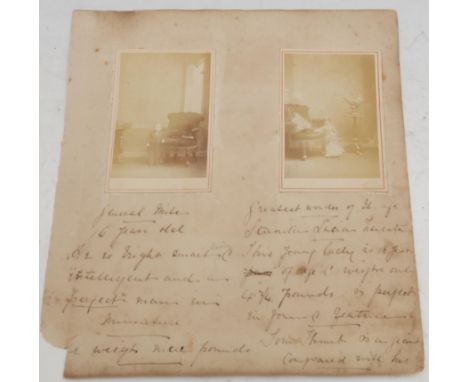 General Mite
16 years old
He is bright smart &
intelligent and as
perfect man in
miniature
he weighs nine pounds
Greatest wonder of the age
Lucia Zarate
This young Lady is
of age & weighs only
4 3/4 pounds is perfect
in form & feature
Tom Thumb is a giant
compared with her